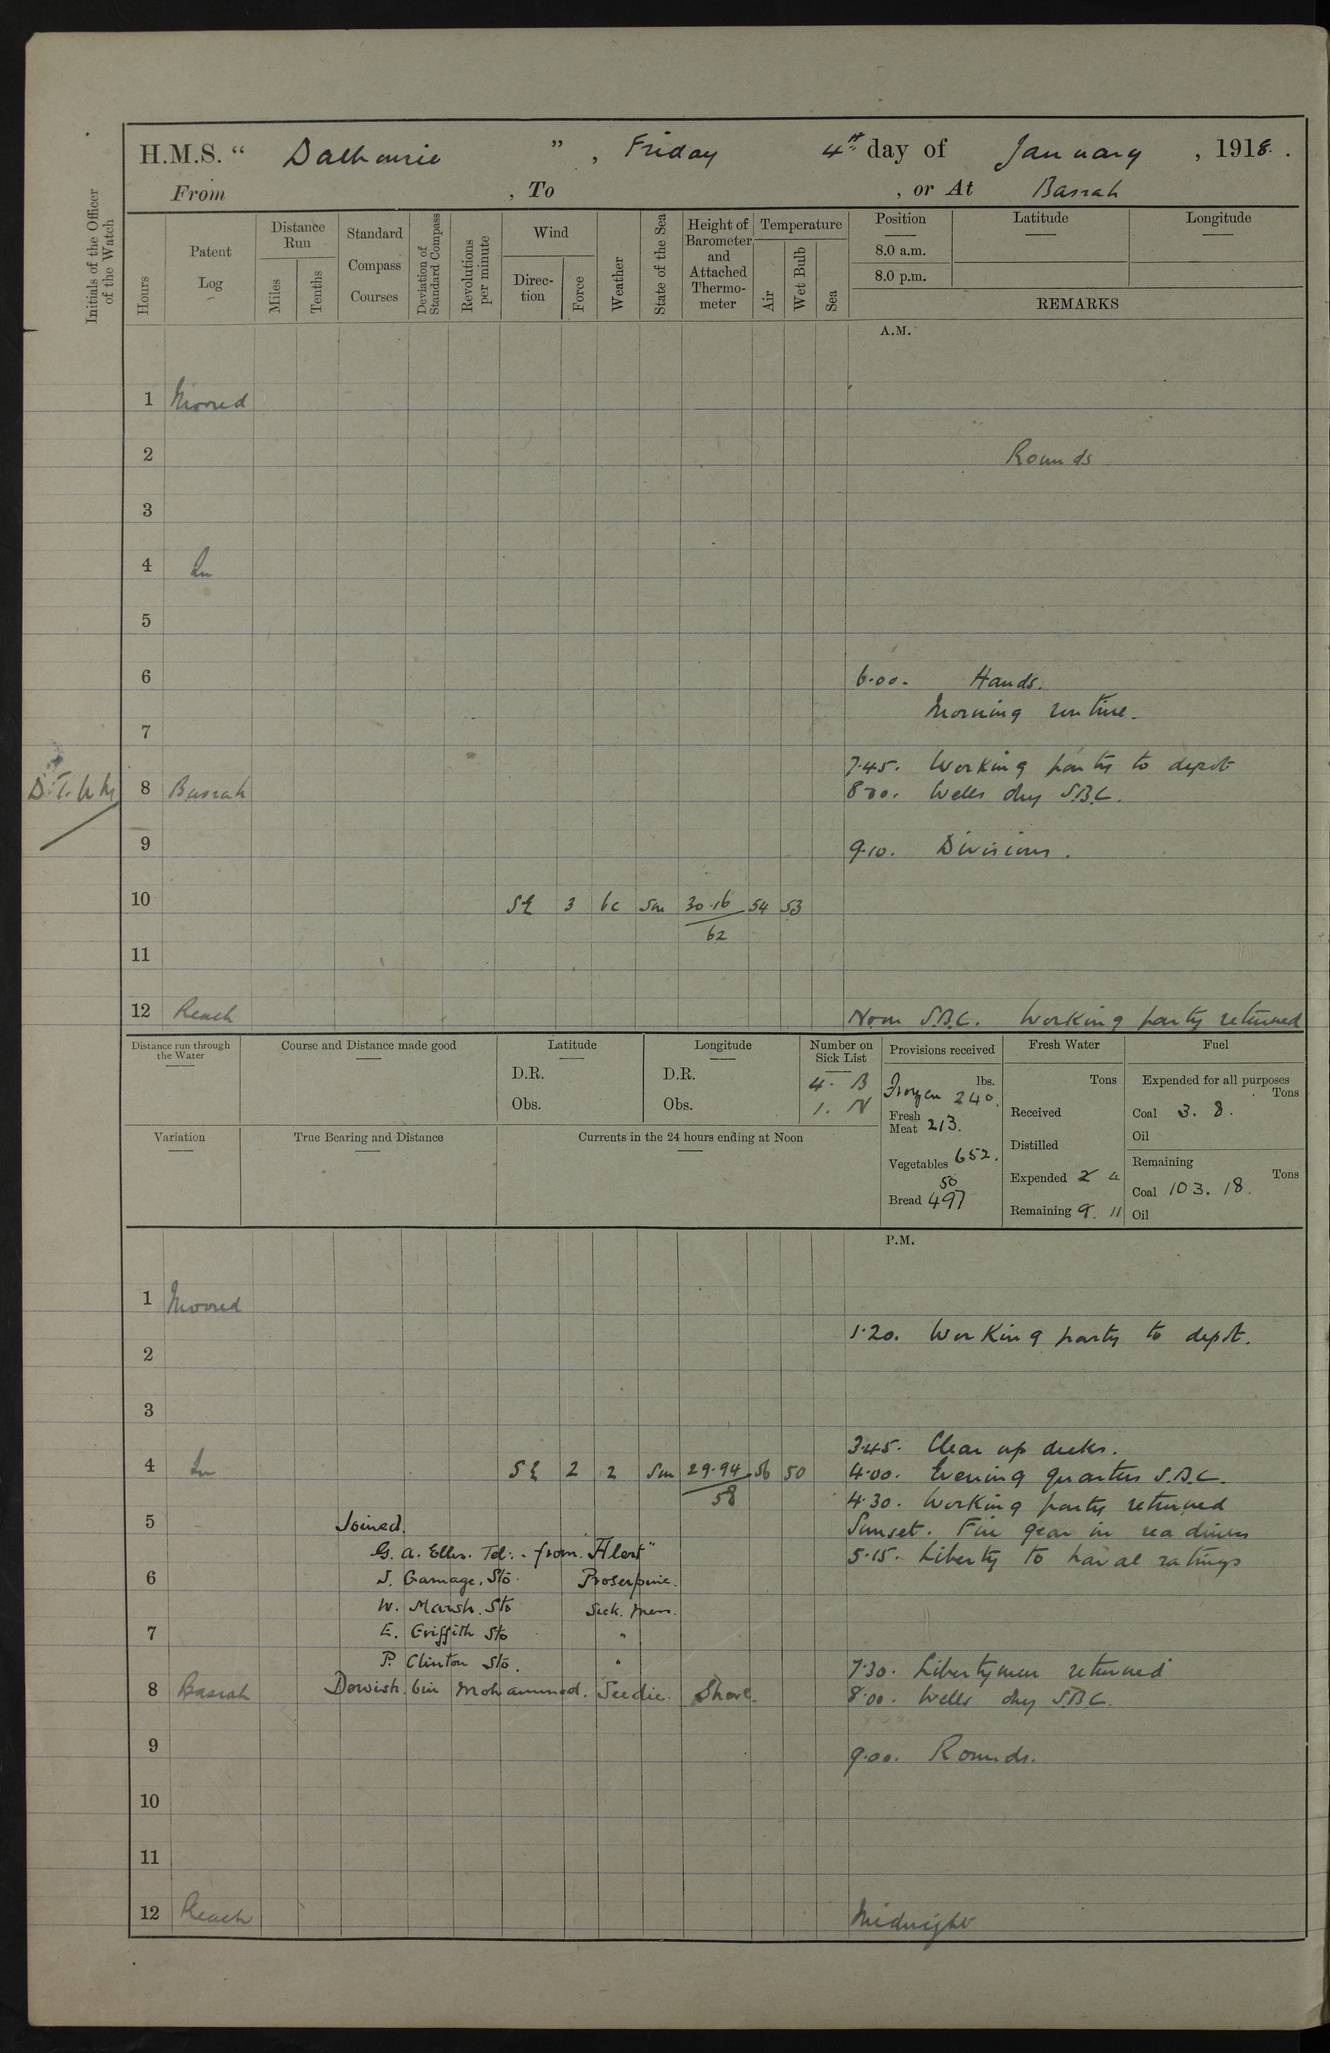 H.M.S. “ Dalhousie ” , Friday 4th day of January , 1918 .
From , To , or At Basrah
Initials of the Officer of the Watch
Hours
Patent Log
Distance Run
Miles
Tenths
Standard Compass Courses
Deviation of Standard Compass
Revolutions per minute
Wind
Direction
Force
Weather
State of the Sea
Height of Barometer and Attached Thermometer
Temperature
Air
Wet Bulb
Sea
Position
8.0 a.m.
8.0 p.m.
Latitude
Longitude
REMARKS
A.M.
1 Moored
2 Rounds
3
4 In
5
6 6.00. Hands.
Morning routine.
7
7.45. Working party to depot
D.T.
8 Basrah 8.00. Wells dry S.B.C.
9 9.10. Divisions.
10 SE 3 bc Sm 30.16 54 53
62
11
12 Reach Noon S.B.C. Working party returned
Distance run through the Water
Course and Distance made good
Latitude
D.R.
Obs.
Longitude
D.R.
Obs.
Number on Sick List
4. B
1. N
Provisions received
lbs.
Frozen 240.
Fresh Meat 213.
Vegetables 652.
50
Bread 497
Fresh Water
Tons
Received
Distilled
Expended 2 4
Remaining 9. 11
Fuel
Expended for all purposes
Tons
Coal 3. 8.
Oil
Remaining
Tons
Coal 103. 18.
Oil
Variation
True Bearing and Distance
Currents in the 24 hours ending at Noon
P.M.
1 Moored
1.20. Working party to depot.
2
3
3.45. Clear up decks.
4 In SE 2 2 Sm 29.94 56 50 4.00. Evening quarters S.B.C.
58
4.30. Working party returned
5 Joined. Sunset. Fire gear in readiness
G. A. Elles. Tel: - from "Alert"
5.15. Liberty to naval ratings
6 J. Gamage. Sto. Proserpine.
W. Marsh. Sto Sick. Mess.
7 E. Griffith Sto "
P. Clinton Sto. "
7.30. Libertymen returned
8 Basrah Dowish. bin Mohammed. Seedie. Shore. 8.00. Wells dry S.B.C.
9 9.00. Rounds.
10
11
12 Reach Midnight